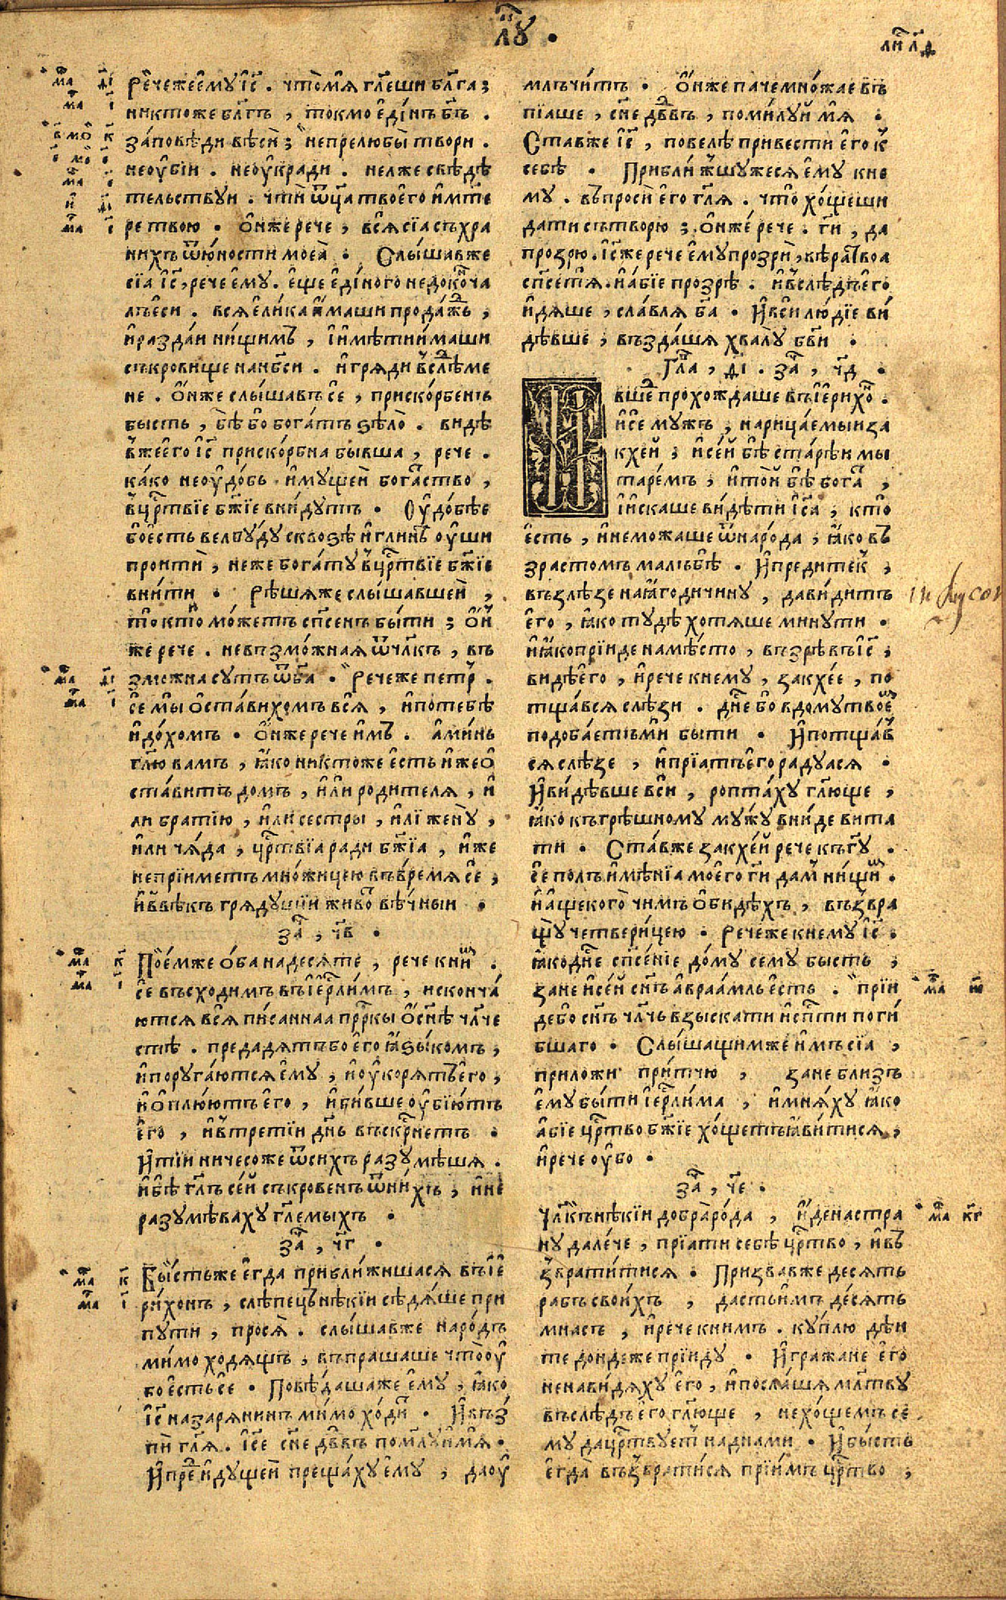 лꙋ҃ .
лиⷭ҇ л҃д
Речежеемꙋ і҃с . чтомѧ гл҃еши бл҃га ;
никтоже бл҃гъ , токмо едінъ бг҃ъ .
заповѣди вѣси ; непрелюбы твори .
неꙋбіи . неꙋкради . нелже свѣдѣ
тельствꙋи . чти ѿц҃а твоего имт҃е
ре твою . онже рече , всѧ сіа съхра
нихъ ѿюности моеа . Слышавже
сіа і҃с , рече емꙋ . еще едіного недокоⷩ҇ча
лъеси . всѧ елика имаши продажⷣь ,
и раздаи нищимъ , и имѣти имаши
съкровище нан҃бси . и грѧди въслⷣѣме
не . онже слышавъ се , прискорбенъ
бысть , бѣ бо богатъ ѕѣло . видѣ
вжеего і҃с прискорбна бывша , рече .
како неꙋдобь имꙋщеи богаⷭ҇тво ,
вцрⷭ҇твіе бж҃іе внидꙋтъ . Оудобѣе
боесть велбꙋдꙋ сквозѣ иглинѣ ꙋши
проити , неже богатꙋ вцрⷭ҇твіе бж҃іе
внити . Рѣшѧже слышавшеи ,
то кто можетъ сп҃сенъ быти ; он
же рече . невъзможная ѿчл҃къ , въ
зможна сꙋтъ ѿб҃га . Речеже петръ .
се мы оставихомъ всѧ , ипотебѣ
идохомъ . онжерече имъ . аминь
гл҃ю вамъ , ꙗко никтоже есть иже о
ставитъ домъ , или родителѧ , и
ли братію , или сестры , илі женꙋ ,
или чѧда , црⷭ҇твіа ради бж҃іа , иже
непріиметъ множицею въвремѧ се ,
иввѣкъ грѧдꙋщіи живоⷮ вѣчныи .
заⷱ҇ , ч҃в .
Поемже обанадесѧте , рече книⷨ .
се въсходимъ въіерⷭ҇лимъ , исконча
ютсѧ всѧ писаннаа прⷪ҇ркы о сн҃ѣ чл҃че
стѣ . предадѧтъбоего ꙗзыкомъ ,
ипорꙋгаютсѧ емꙋ , и ꙋкорѧтъего ,
и оплюютъ его , и бивше ꙋбіютъ
его , ивтретіи дн҃ь въскрⷭ҇нетъ .
И тіи ничесоже ѿсихъ разꙋмѣшѧ .
и бѣ гл҃ъ сеи съкровенъ ѿнихъ , и не
разꙋмѣвахꙋ гл҃емыхъ .
заⷱ҇ , ч҃г .
Бысть же егда приближишасѧ въіе
рихонъ , слѣпецъ нѣкіи сѣдѧше при
пꙋти , просѧ . слышавже народъ
мимо ходѧщъ , въпрашаше чтоꙋ
бо есть се . Повѣдашаже емꙋ , ꙗко
і҃с назарѧнинъ мимо ходиⷮ . И въз
пи гл҃ѧ . і҃се сн҃е дв҃въ помилꙋимѧ .
И преⷣ идꙋщеи прещахꙋ емꙋ , да ꙋ
млъчитъ . Онже паче множае въ
піаше , сн҃е дв҃въ , помилꙋи мѧ .
Ставже і҃с , повелѣ привести его к
себѣ . Приближшꙋжесѧ емꙋ кне
мꙋ . въпроси его гл҃ѧ . что хощеши
дати сътворю ; онже рече . ги҃ , да
прозрю . і҃сжерече емꙋ прозри , вѣратвоа
сп҃сетѧ . и абіе прозрѣ . и въслѣдъего
идѧше , славлѧ б҃га . И вси людіе ви
дѣвше , въздашѧ хвалꙋ бг҃ви .
Глаⷡ҇ , ді . заⷱ҇ , ч҃д .
И
вше прохождаше въіерихоⷩ .
и се мꙋжъ , нарицаемыи за
кхеи ; исеи бѣ старѣи мы
таремъ ; итои бѣ богаⷮ ,
и искаше видѣти і҃са , кто
есть , инеможаше ѿнарода , ꙗко въ
зрастомъ мальбѣ . И предитекъ ,
възлѣзе на ꙗгодичинꙋ , давидитъ
его , ꙗко тꙋдѣ хотѧше минꙋти .
и ꙗкопріиде наmѣсто , възрѣвъ і҃с ,
видѣего , ирече кнемꙋ , закхее , по
тщавсѧ слѣзи . дн҃е бо вдомꙋ твоеⷨ
подобаетъми быти . И потщав
сѧ слѣзе , и пріатъего радꙋасѧ .
И видѣвше вси , роптахꙋ гл҃юще ,
ꙗко къгрѣшномꙋ мꙋжꙋ вниде вита
ти . Ставже закхеи рече къг҃ꙋ .
се полъимѣніа моего ги҃ дамъ нищиⷨ .
и ащекого чимъ обидѣхъ , възвра
щꙋ четверицею . Речеже кнемꙋ і҃с .
ꙗкоднⷭ҇е сп҃сеніе домꙋ семꙋ бысть ,
зане исеи сн҃ъ авраамль есть . прiи
дебо сн҃ъ чл҃чь взыскати исп҃сти поги
бшаго . Слышащимже имъ сіа ,
приложи притчю , зане близъ
емꙋ быти іерⷭ҇лима , и мнѧхꙋ ꙗко
абіе црⷭ҇тво бж҃іе хощетъꙗвитисѧ ,
и рече ꙋбо .
заⷱ҇ , ч҃е .
Чл҃къ нѣкіи добрарода , иденастра
нꙋ далече , пріати себѣ црⷭ҇тво , ивъ
звратитисѧ . Призвавже десѧть
рабъ своихъ , дастьимъ десѧть
мнасъ , ирече книмъ . кꙋплю дѣи
те дондеже пріидꙋ . И гражане его
ненавидѧхꙋ его , и послашѧ млт҃вꙋ
въслѣдъ его гл҃юще , нехощемъ се
мꙋ дацрⷭ҇твꙋетъ наднами . И бысть
егда възвратисѧ пріимъ црⷭ҇тво ,